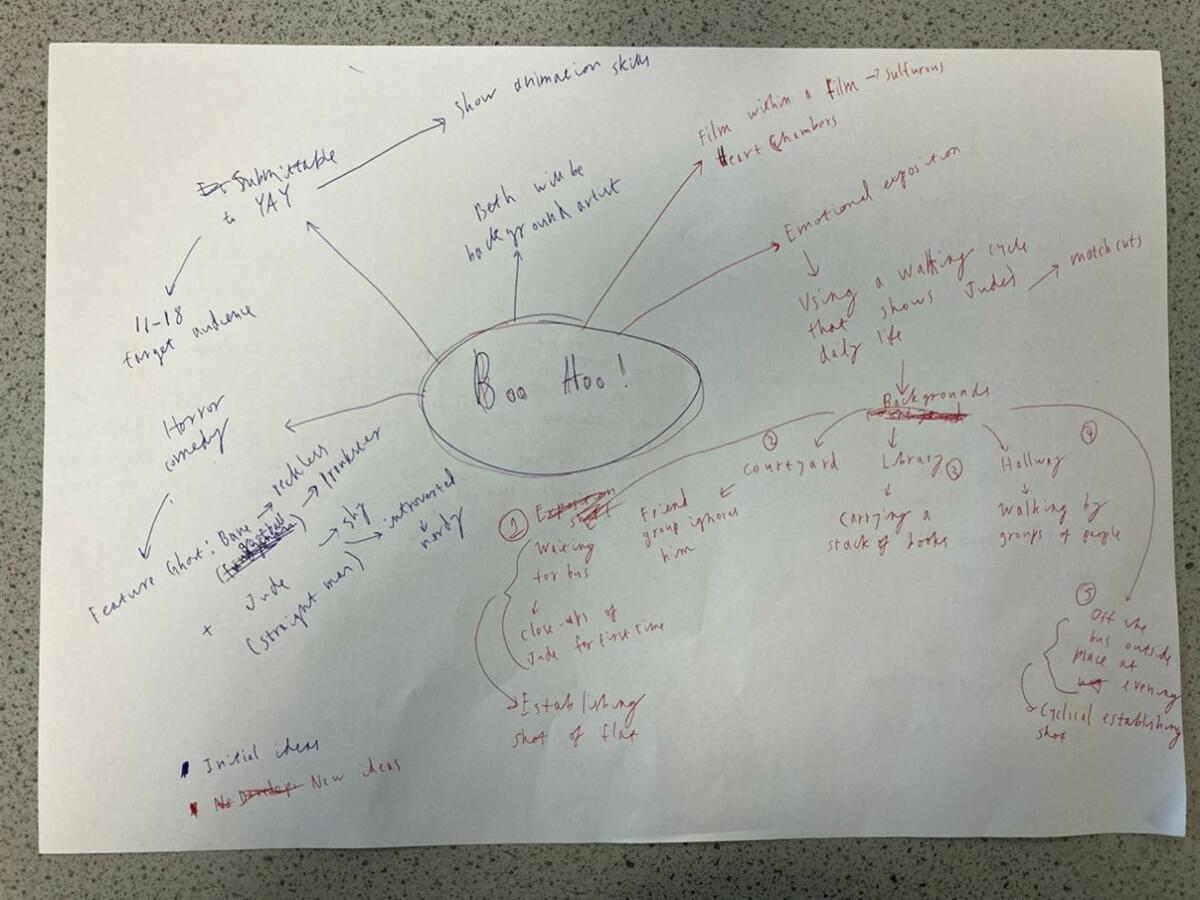 Boo Hoo!
Submittable
to YAY
show animation skills
11-18
target audience
Both will be
background artist
Film within a film → sulfurous
Heart Chambers
Emotional exposition
Using a walking cycle
that shows Jude's
daily life
match cuts
Backgrounds
① Exposition
shot
Waiting
for bus
close-ups of
Jude for first time
Establishing
shot of flat
②
courtyard
Friend
group ignores
him
Library ③
Carrying a
stack of books
④
Hallway
Walking by
groups of people
⑤
Off the
bus outside
place at
evening
Cyclical establishing
shot
Horror
comedy
Feature Ghost: Bane → reckless
→ prankster
+ Jude → shy
(straight man) → introverted
nerdy
Initial ideas
No Develop New ideas